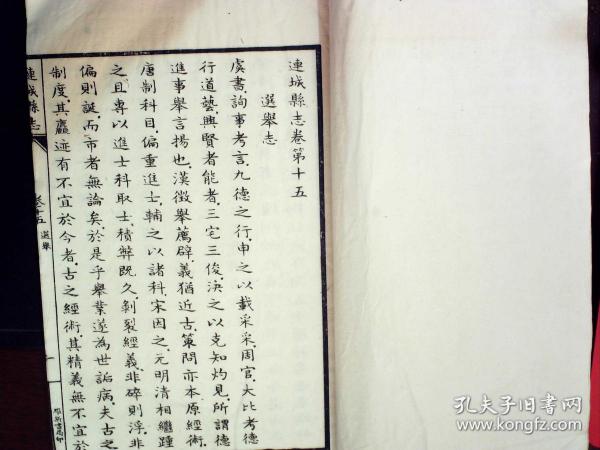 連城縣志卷第十五
選舉志
虞書詢事考言.九德之行.申之以載采采.周官.大比考德
行道藝.興賢者能者.三宅三俊.決之以克知灼見.所謂德
進事舉言揚也.漢徵舉薦辟.義猶近古.策問亦本原經術.
唐制科目.偏重進士.輔之以諸科.宋因之.元明清相繼踵
之.且專以進士科取士.積弊既久.剝裂經義.非碎則浮.非
偏則誕.而市者無論矣.於是乎舉業遂為世詬病.夫古之
制度其麤迹有不宜於今者.古之經術.其精義無不宜於
連城縣志
卷十五 選舉
一
維新書局印
孔夫子旧书网
www.kongfz.com